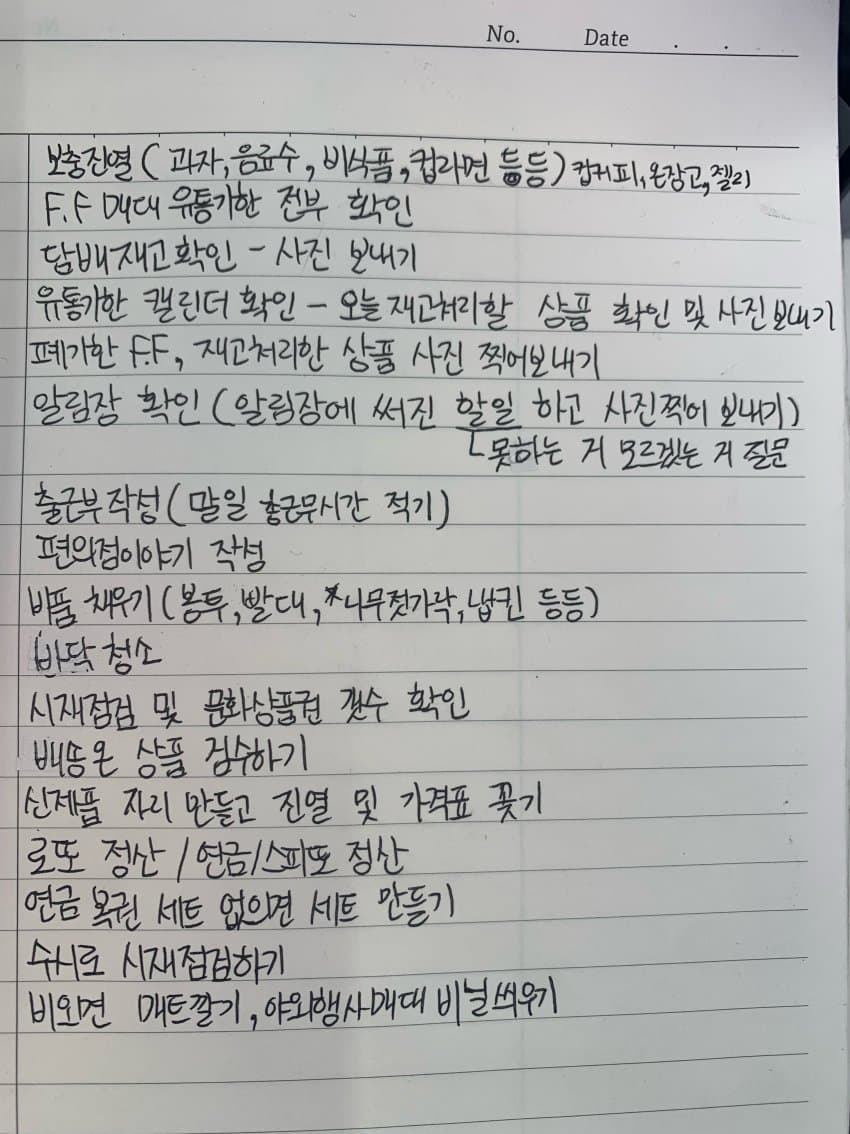 No. Date . .
보충진열 ( 과자, 음료수, 비식품, 컵라면 등등) 캔커피, 온장고, 젤리
F.F 매대 유통기한 전부 확인
담배재고확인 - 사진 보내기
유통기한 캘린더 확인 - 오늘 재고처리할 상품 확인 및 사진보내기
폐기한 F.F, 재고처리한 상품 사진 찍어보내기
알림장 확인 ( 알림장에 써진 할일 하고 사진찍어 보내기)
못하는 거 모르겠는 거 질문
출근부작성 ( 말일 총근무시간 적기)
편의점이야기 작성
비품 채우기 (봉투, 빨대, *나무젓가락, 냅킨 등등)
바닥 청소
시재점검 및 문화상품권 갯수 확인
배송온 상품 검수하기
신제품 자리 만들고 진열 및 가격표 꽂기
로또 정산 / 연금/스피또 정산
연금 복권 세트 없으면 세트 만들기
수시로 시재점검하기
비오면 매트깔기, 야외행사매대 비닐씌우기